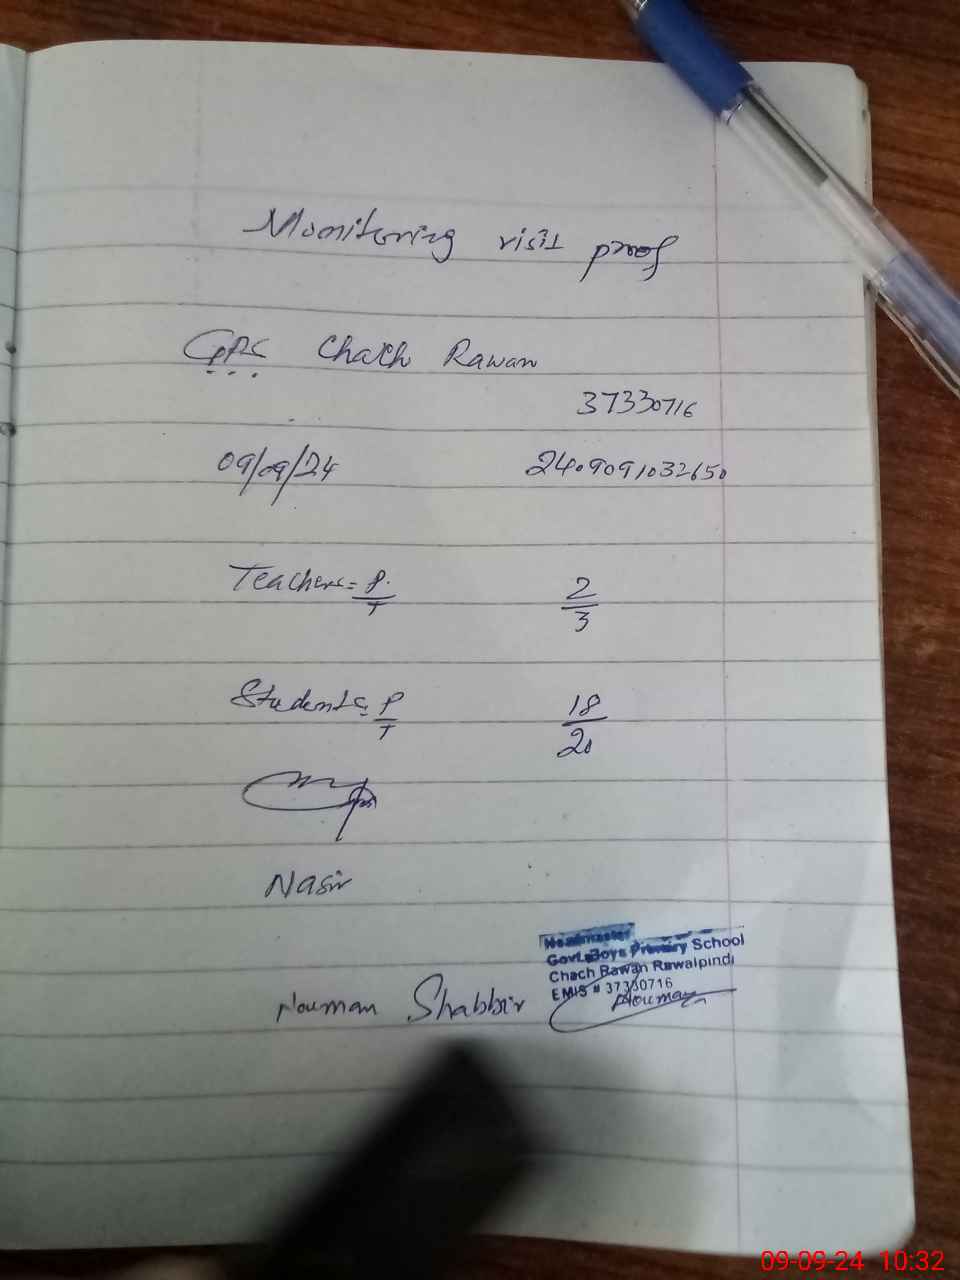 Monitoring visit proof
GPS Chach Rawan
37330716
09/09/24 2409091032650
Teachers = P/T 2/3
Students = P/T 18/20
Nasir
Nouman Shabbir
Headmaster
Govt. Boys Primary School
Chach Rawan Rawalpindi
EMIS # 37330716
Nouman
09-09-24 10:32